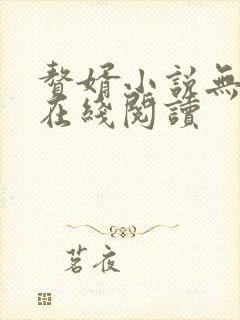 贅婿小說無
在綫閱讀
茗夜